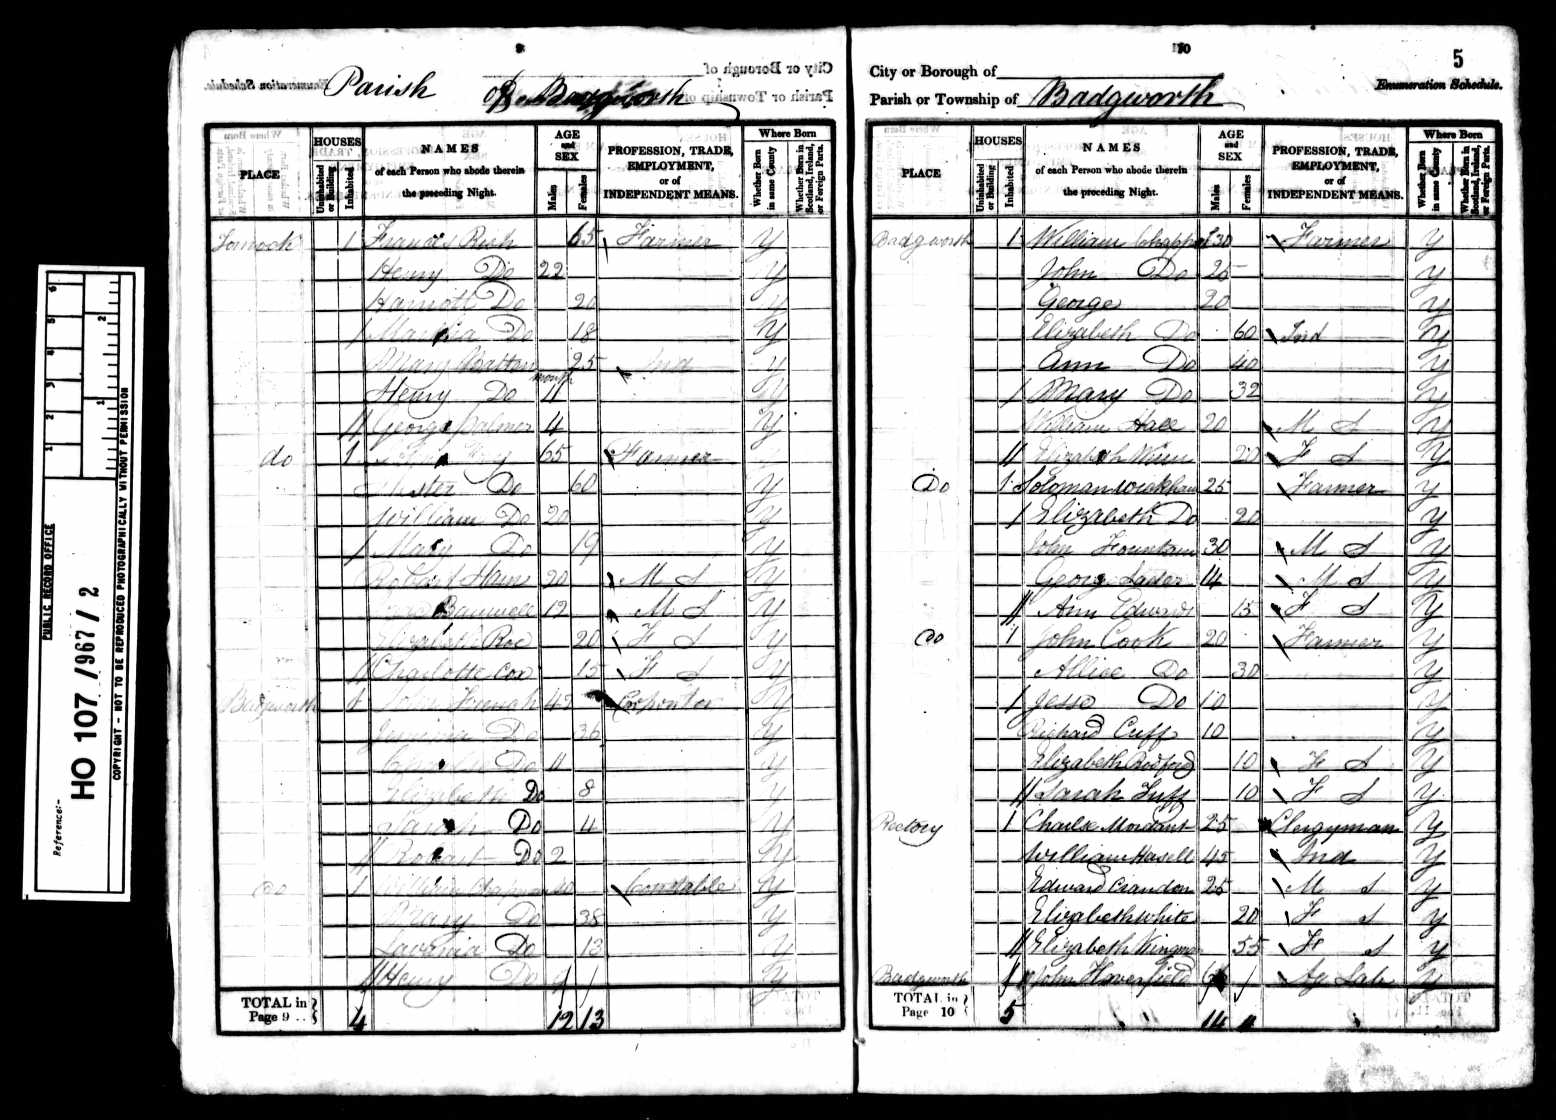 5
Parish of Badgworth
City or Borough of
Parish or Township of
Enumeration Schedule.
PLACE
HOUSES
Uninhabited or Building
Inhabited
NAMES of each Person who abode therein the preceding Night.
AGE and SEX
Males
Females
PROFESSION, TRADE, EMPLOYMENT, or of INDEPENDENT MEANS.
Where Born
Whether Born in same County
Whether Born in Scotland, Ireland, or Foreign Parts.
1 Frances 65 Farmer y
Henry Do 22 y
Do 20 y
/ Do 18 y
Mary 25 Ind y
Henry Do 11 month y
// George Palmer 4 y
do 1 65 Farmer y
Do 60 y
William Do 20 y
/ Mary Do 19 y
Robert 20 M S y
Banwell 12 M S y
Elizabeth Roe 20 F S y
// Charlotte Cox 15 F S y
Badgworth 1 John 42 Carpenter y
Do 36 y
Do 11 y
Elizabeth Do 8 y
Sarah Do 4 y
// Robert Do 2 y
Do 1 William Chapman 40 Constable y
Mary Do 38 y
Lavinia Do 13 y
// Henry Do 9 y
TOTAL in Page 9 4 12 13
City or Borough of
Parish or Township of Badgworth
Enumeration Schedule.
PLACE
HOUSES
Uninhabited or Building
Inhabited
NAMES of each Person who abode therein the preceding Night.
AGE and SEX
Males
Females
PROFESSION, TRADE, EMPLOYMENT, or of INDEPENDENT MEANS.
Where Born
Whether Born in same County
Whether Born in Scotland, Ireland, or Foreign Parts.
Badgworth 1 William 30 Farmer y
John Do 25 y
George 20 y
Elizabeth Do 60 Ind y
Ann Do 40 y
/ Mary Do 32 y
William Hall 20 M S y
// Elizabeth 20 F S y
Do 1 Soloman Wickham 25 Farmer y
/ Elizabeth Do 20 y
John Fountain 30 M S y
George 14 M S y
// Ann Edwards 15 F S y
Do 1 John Cook 20 Farmer y
Allice Do 30 y
/ Jesse Do 10 y
Richard Cuff 10 y
Elizabeth Bodford 10 F S y
// Sarah Tuff 10 F S y
Rectory 1 Charlse Mordant 25 Clergyman y
William Hasell 45 Ind y
Edward Crandon 25 M S y
Elizabeth White 20 F S y
// Elizabeth Wingman 55 F S y
Badgworth 1 John Haverfield Ag Lab y
TOTAL in Page 10 5 14
PUBLIC RECORD OFFICE
Reference:-
HO 107 / 967 / 2
COPYRIGHT - NOT TO BE REPRODUCED PHOTOGRAPHICALLY WITHOUT PERMISSION
1 2 3 4 5 6
1 2